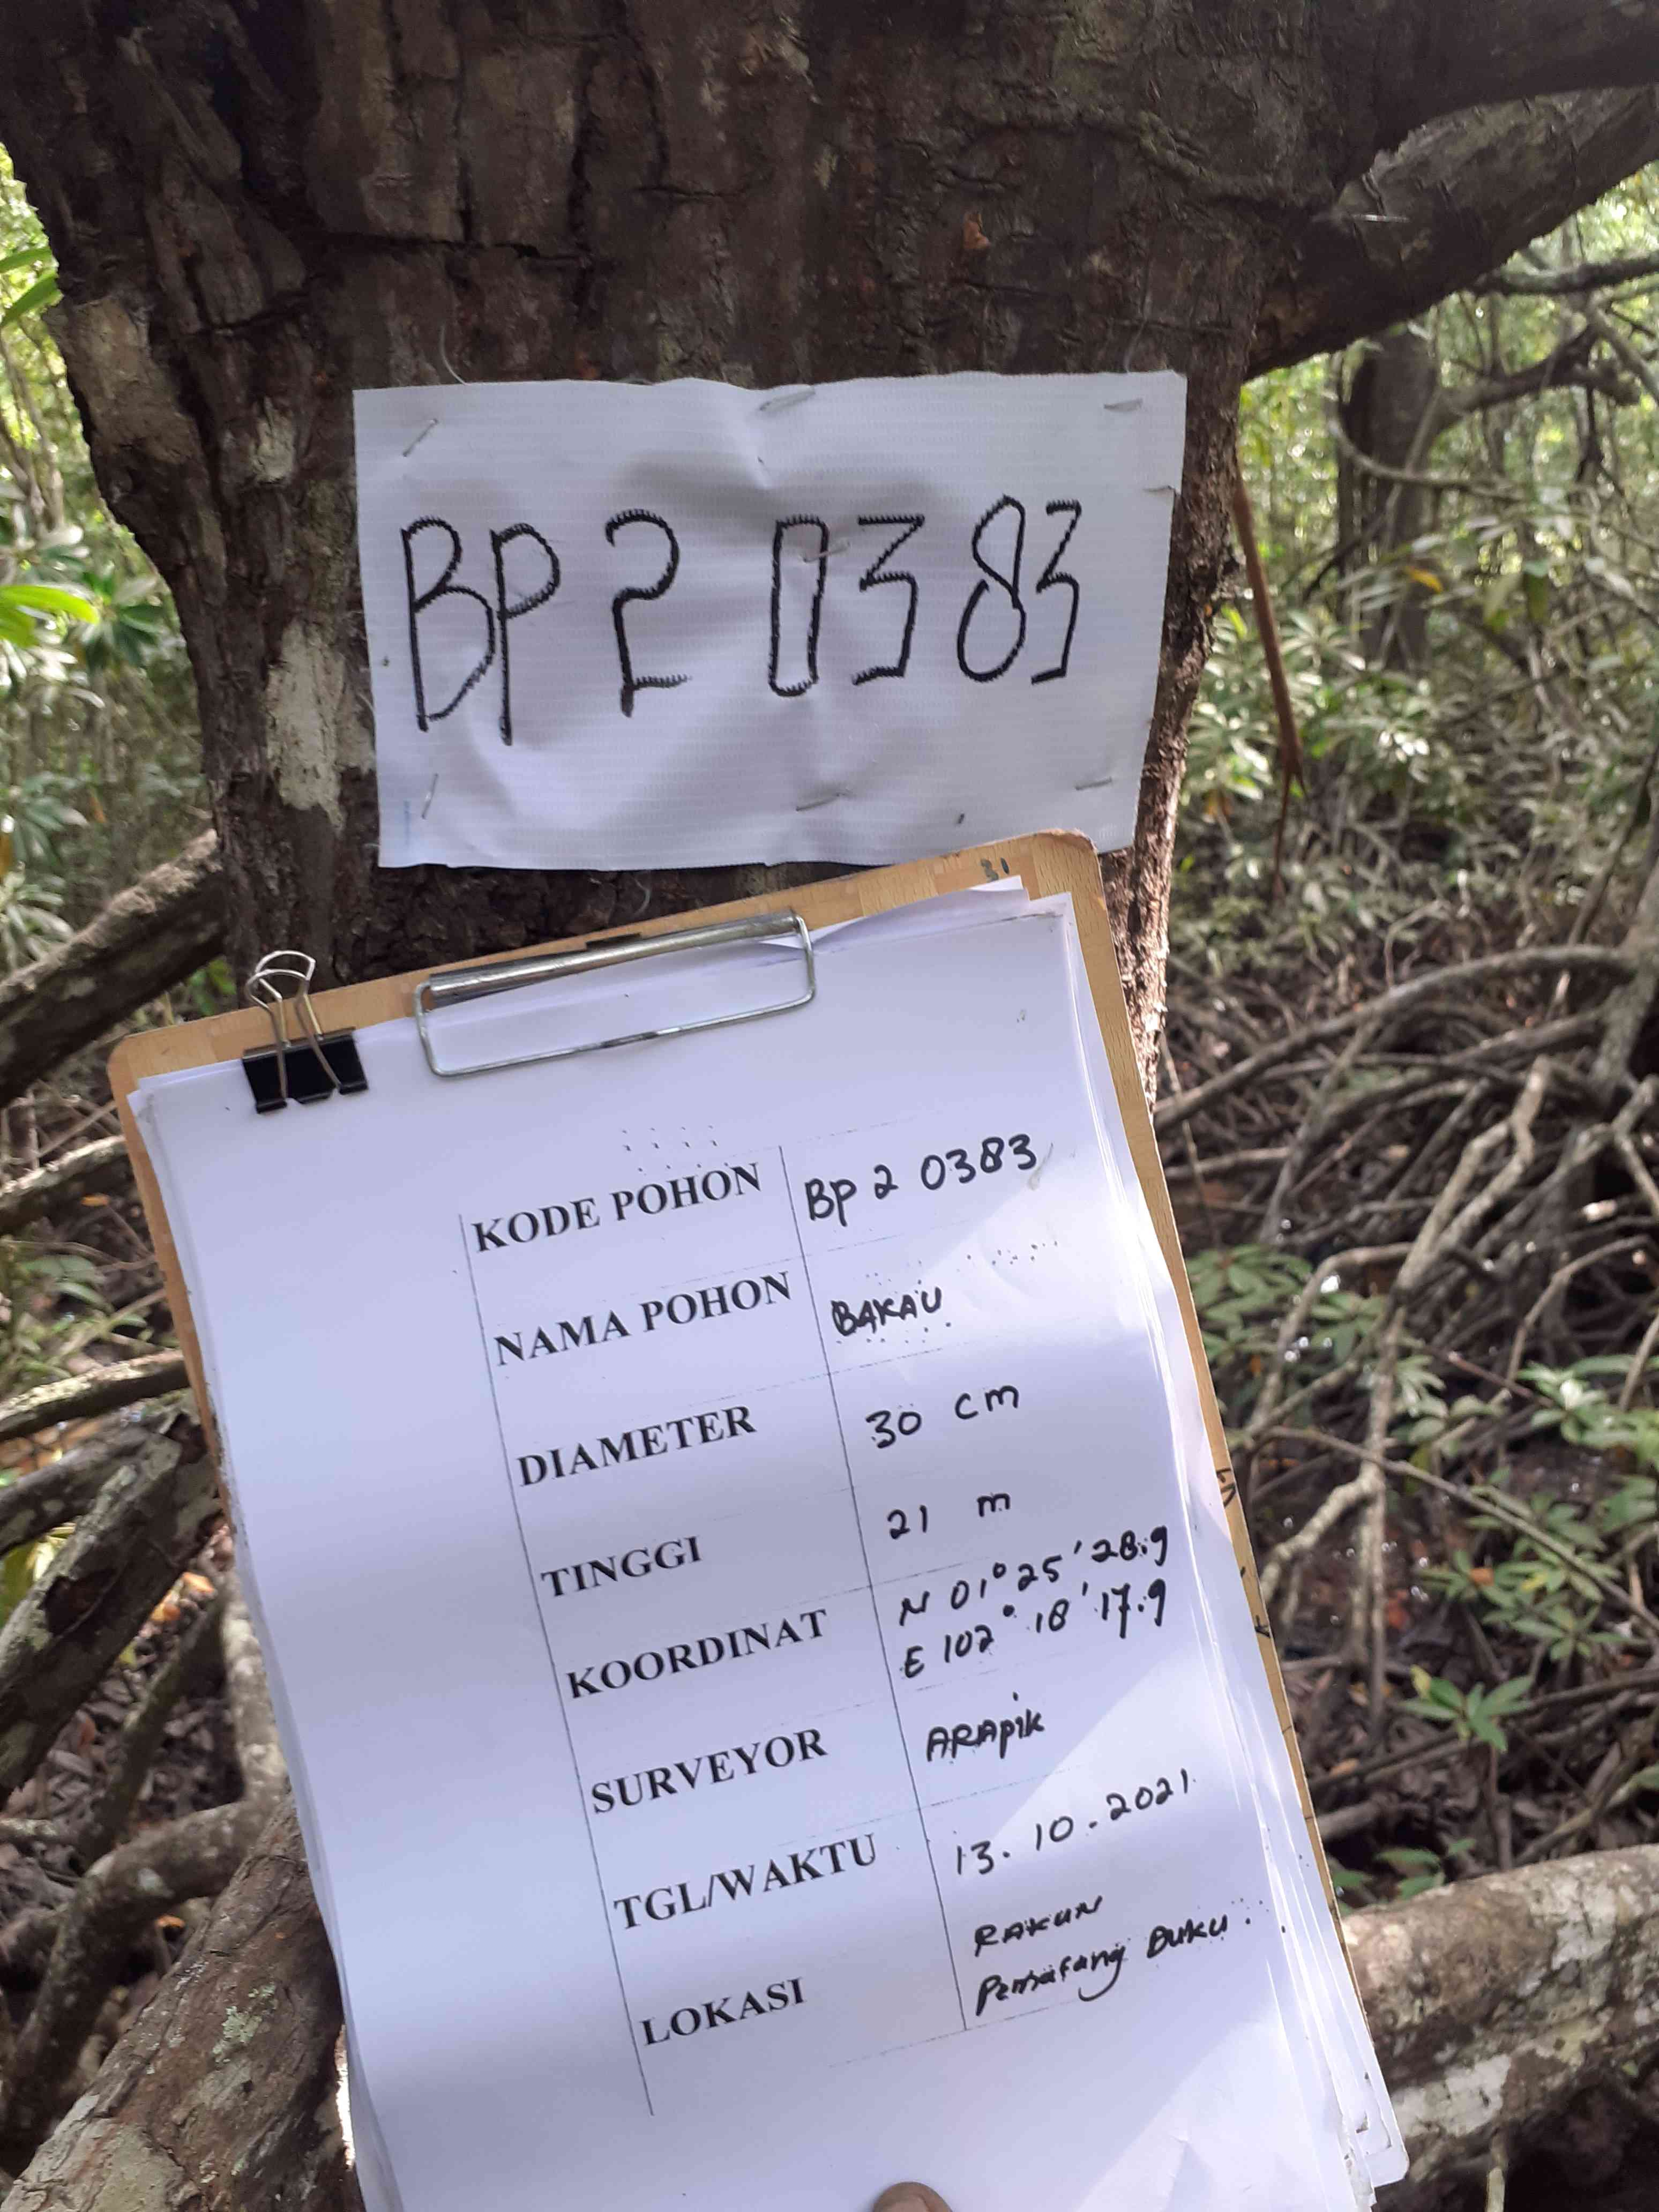 BP 2 0383
31
KODE POHON BP 2 0383
NAMA POHON BAKAU
DIAMETER 30 cm
TINGGI 21 m
KOORDINAT N 01° 25' 28.9
E 102° 18' 17.9
SURVEYOR ARApik
TGL/WAKTU 13.10.2021
LOKASI RAKUN
Buku